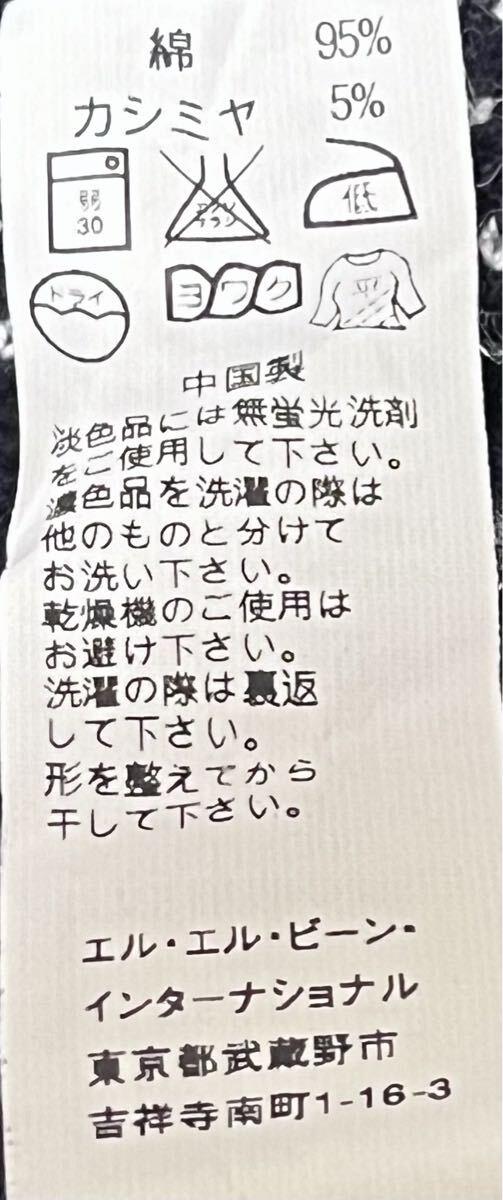 綿 95%
カシミヤ 5%
弱
30
エンソ
サラシ
低
ドライ
ヨワク
平
中国製
淡色品には無蛍光洗剤
をご使用して下さい。
濃色品を洗濯の際は
他のものと分けて
お洗い下さい。
乾燥機のご使用は
お避け下さい。
洗濯の際は裏返
して下さい。
形を整えてから
干して下さい。
エル・エル・ビーン・
インターナショナル
東京都武蔵野市
吉祥寺南町1-16-3